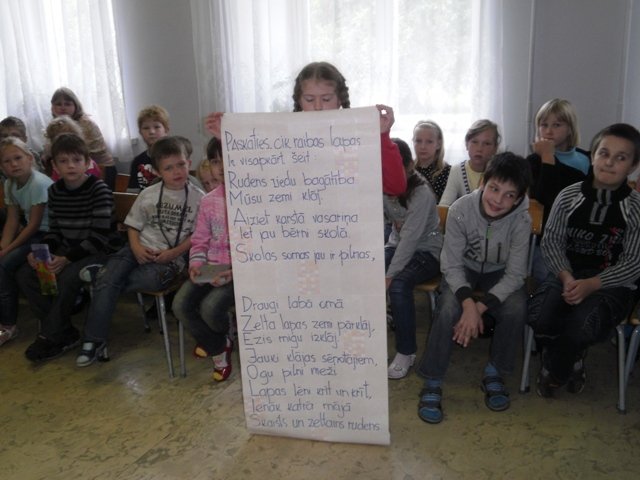 Paskaties, cik raibas lapas
Ir visapkārt šeit.
Rudens ziedu bagātība
Mūsu zemi klāj.
Aiziet karstā vasariņa
Iet jau bērni skolā
Skolas somas jau ir pilnas,
Draugi labā omā
Zelta lapas zemi pārklāj,
Ezis migu izklāj
Jauki klājas sēņotājiem,
Ogu pilni meži
Lapas lēni krīt un krīt,
Ienāk katrā mājā
Skaists un zeltains rudens